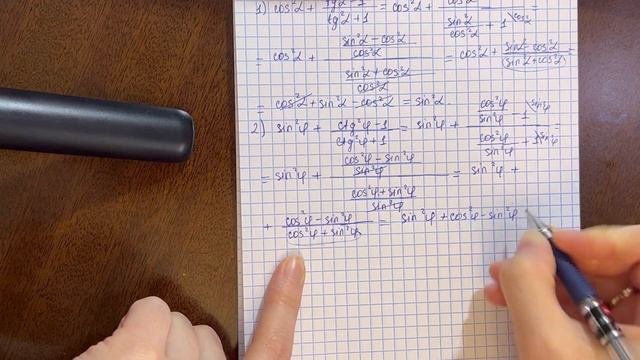 1) cos²α + (tg²α − 1)/(tg²α + 1) = cos²α + / (sin²α/cos²α + 1\cos²α) =
= cos²α + ((sin²α − cos²α)/cos²α)/((sin²α + cos²α)/cos²α) = cos²α + (sin²α − cos²α)/(sin²α + cos²α) =
= cos²α + sin²α − cos²α = sin²α.
2) sin²φ + (ctg²φ − 1)/(ctg²φ + 1) = sin²φ + (cos²φ/sin²φ − 1\sin²φ)/(cos²φ/sin²φ + 1\sin²φ) =
= sin²φ + ((cos²φ − sin²φ)/sin²φ)/((cos²φ + sin²φ)/sin²φ) = sin²φ +
+ (cos²φ − sin²φ)/(cos²φ + sin²φ) = sin²φ + cos²φ − sin²φ